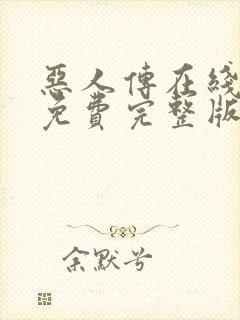 惡人傳在綫
免費完整版
余默兮